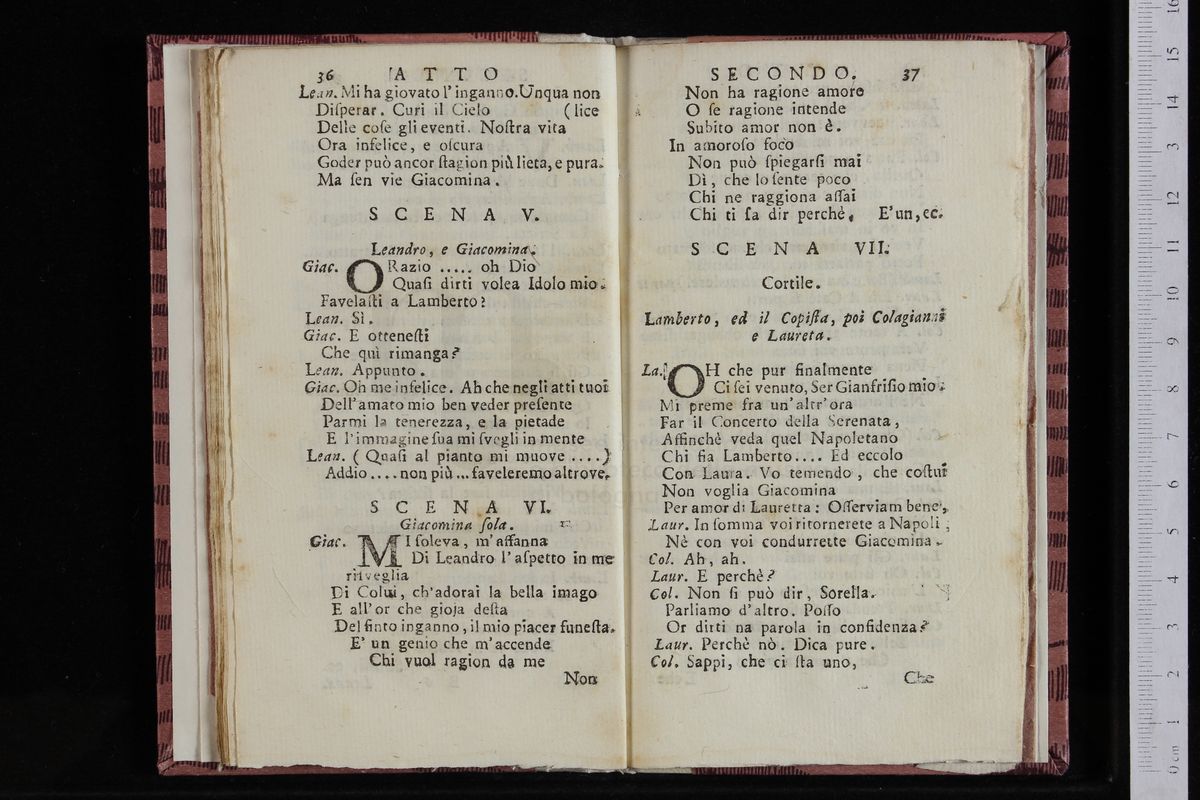 36 ATTO
Lean. Mi ha giovato l'inganno. Unqua non
Diſperar. Curi il Cielo (lice
Delle coſe gli eventi. Noſtra vita
Ora infelice, e oſcura
Goder può ancor ſtagion più lieta, e pura.
Ma ſen vie Giacomina.
SCENA V.
Leandro, e Giacomina.
Giac. ORazio ..... oh Dio
Quaſi dirti volea Idolo mio.
Favelaſti a Lamberto?
Lean. Sì.
Giac. E otteneſti
Che quì rimanga?
Lean. Appunto.
Giac. Oh me infelice. Ah che negli atti tuoi
Dell'amato mio ben veder preſente
Parmi la tenerezza, e la pietade
E l'immagine ſua mi ſvegli in mente
Lean. (Quaſi al pianto mi muove ....)
Addio .... non più ... faveleremo altrove.
SCENA VI.
Giacomina ſola.
Giac. MI ſoleva, m'affanna
Di Leandro l'aſpetto in me
riſveglia
Di Colui, ch'adorai la bella imago
E all'or che gioja deſta
Del finto inganno, il mio piacer funeſta.
E' un genio che m'accende
Chi vuol ragion da me
Non
SECONDO. 37
Non ha ragione amore
O ſe ragione intende
Subito amor non è.
In amoroſo foco
Non può ſpiegarſi mai
Dì, che lo ſente poco
Chi ne raggiona aſſai
Chi ti ſa dir perchè. E'un, ec.
SCENA VII.
Cortile.
Lamberto, ed il Copiſta, poi Colagianni
e Laureta.
La. OH che pur finalmente
Ci ſei venuto, Ser Gianfriſio mio.
Mi preme fra un'altr'ora
Far il Concerto della Serenata,
Affinchè veda quel Napoletano
Chi ſia Lamberto.... Ed eccolo
Con Laura. Vo temendo, che coſtui
Non voglia Giacomina
Per amor di Lauretta: Oſſerviam bene,
Laur. In ſomma voi ritornerete a Napoli,
Nè con voi condurrette Giacomina.
Col. Ah, ah.
Laur. E perchè?
Col. Non ſi può dir, Sorella.
Parliamo d'altro. Poſſo
Or dirti na parola in confidenza?
Laur. Perchè nò. Dica pure.
Col. Sappi, che ci ſta uno,
Che